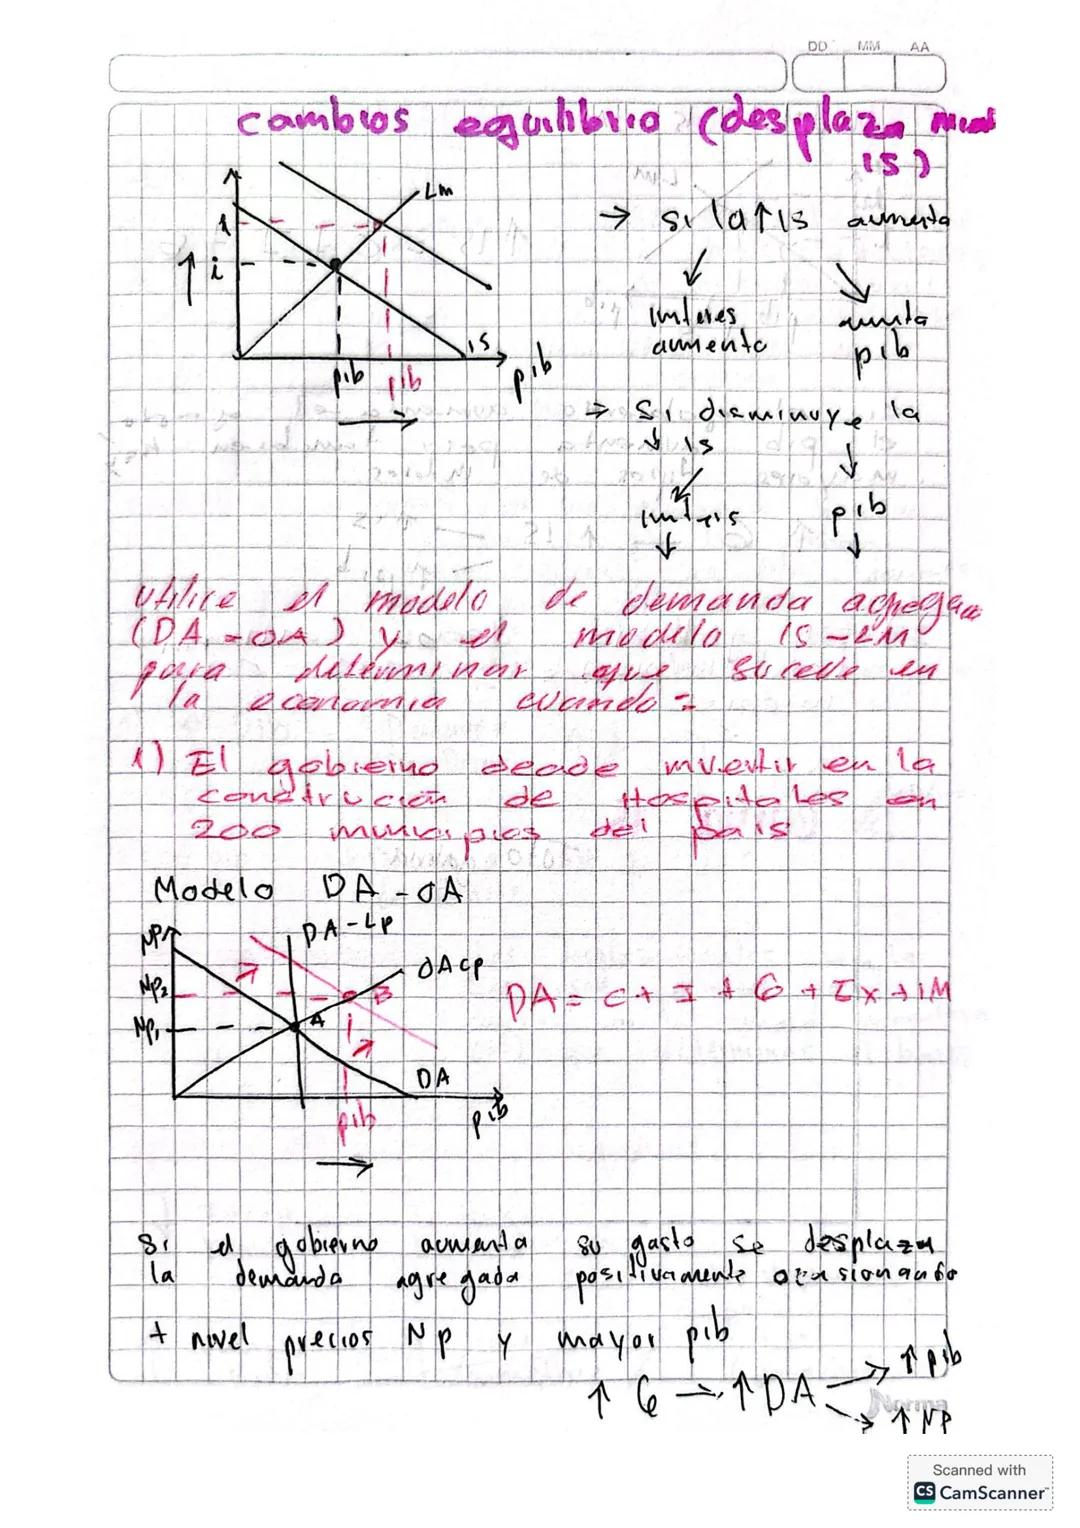 DD MM AA
cambios equilibrio (desplaza mient
IS)
Lm
1
↑ i
IS
pib pib
pib
→ si la ↑ IS aumenta
interes aumenta
aumenta pib
→ si disminuye la
↓ IS ↓
interis pib
↓ ↓
utilice el modelo de demanda agregada
(DA - OA) y el modelo IS-LM
para determinar que sucede en
la economia cuando =
1) El gobierno decide invertir en la
construcción de Hospitales en
200 municipios del pais
Modelo DA - OA
NP
DA - LP
OA cp
NP2
B
DA = C + I + G + Ex + IM
NP1
A
DA
pib
pib
Si el gobierno aumenta su gasto se desplaza
la demanda agregada positivamente ocasionando
+ nivel precios NP y mayor pib
↑ G → ↑ DA → ↑ pib
→ ↑ NP
Norma
Scanned with
CS CamScanner